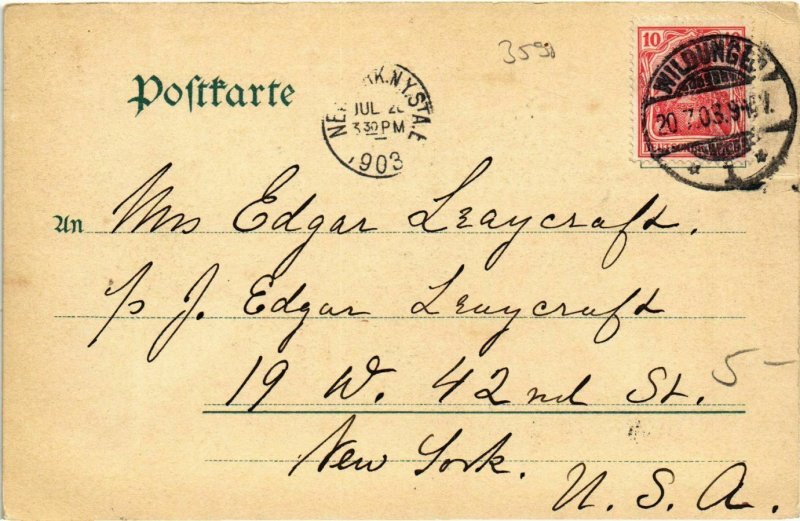 Postkarte
3590
NEW YORK, N.Y. STA. E
JUL 28
3 30 PM
1903
10
WILDUNGEN
20.7.03. 9-10 V.
* 1 *
An Mrs Edgar Leaycraft.
p J. Edgar Leaycraft
19 W. 42nd St.
5-
New York.
U. S. A.